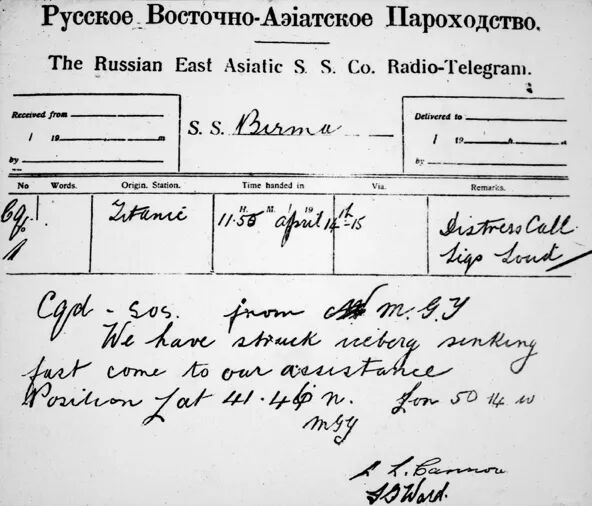 Русское Восточно-Азіатское Пароходство.
The Russian East Asiatic S. S. Co. Radio-Telegram.
Received from
1 19 m
by
S. S. Birma
Delivered to
1 19
by
No Words. Origin. Station. Time handed in Via. Remarks.
Cqd Titanic H. M. 19 11.50 April 14th-15 Distress Call
1 Sigs Loud
Cqd - SOS. from M.G.Y
We have struck iceberg sinking
fast come to our assistance
Position Lat 41.46 n. Lon 50 14 w
MGY
Cannon
Ward.